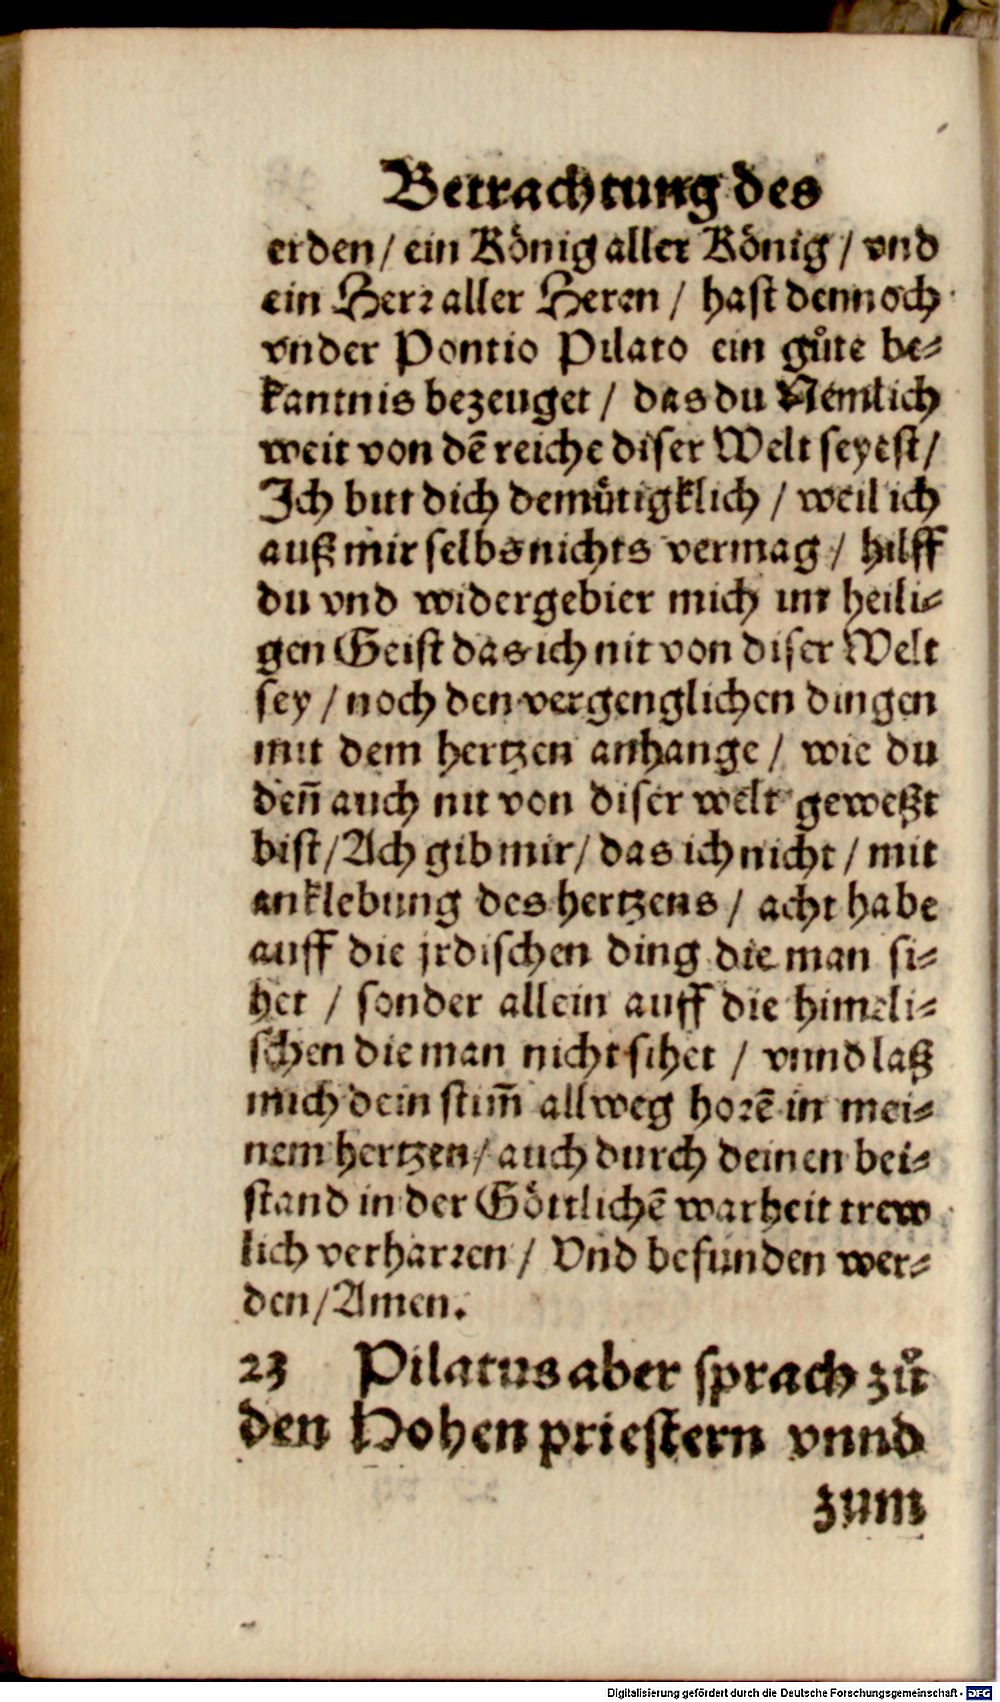 Betrachtung des
erden / ein König aller König / vnd
ein Herr aller Heren / hast dennoch
vnder Pontio Pilato ein gůte be-
kantnis bezeuget / das du Nemlich
weit von dẽ reiche diser Welt seyest /
Ich bitt dich demůtigklich / weil ich
auß mir selbs nichts vermag / hilff
du vnd widergebier mich im heili-
gen Geist das ich nit von diser Welt
sey / noch den vergenglichen dingen
mit dem hertzen anhange / wie du
den̄ auch nit von diser welt geweßt
bist / Ach gib mir / das ich nicht / mit
anklebung des hertzens / acht habe
auff die jrdischen ding die man si-
het / sonder allein auff die himeli-
schen die man nicht sihet / vnnd laß
mich dein stim̄ allweg horẽ in mei-
nem hertzen / auch durch deinen bei-
stand in der Göttlichẽ warheit trew
lich verharren / Vnd befunden wer-
den / Amen.
23 Pilatus aber sprach zů
den Hohen priestern vnnd
zum
Digitalisierung gefördert durch die Deutsche Forschungsgemeinschaft - DFG